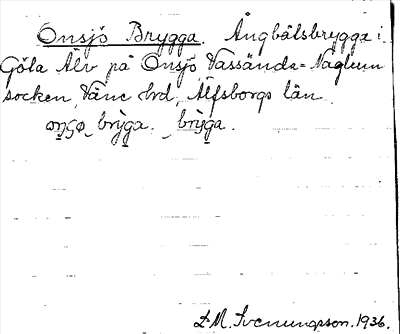 Onsjö Brygga. Ångbåtsbrygga i
Göta Älv på Onsjö Vassända-Naglum
socken, Väne hrd, Älfsborgs län.
bryga. bryga.
M. Svenungsson. 1936.